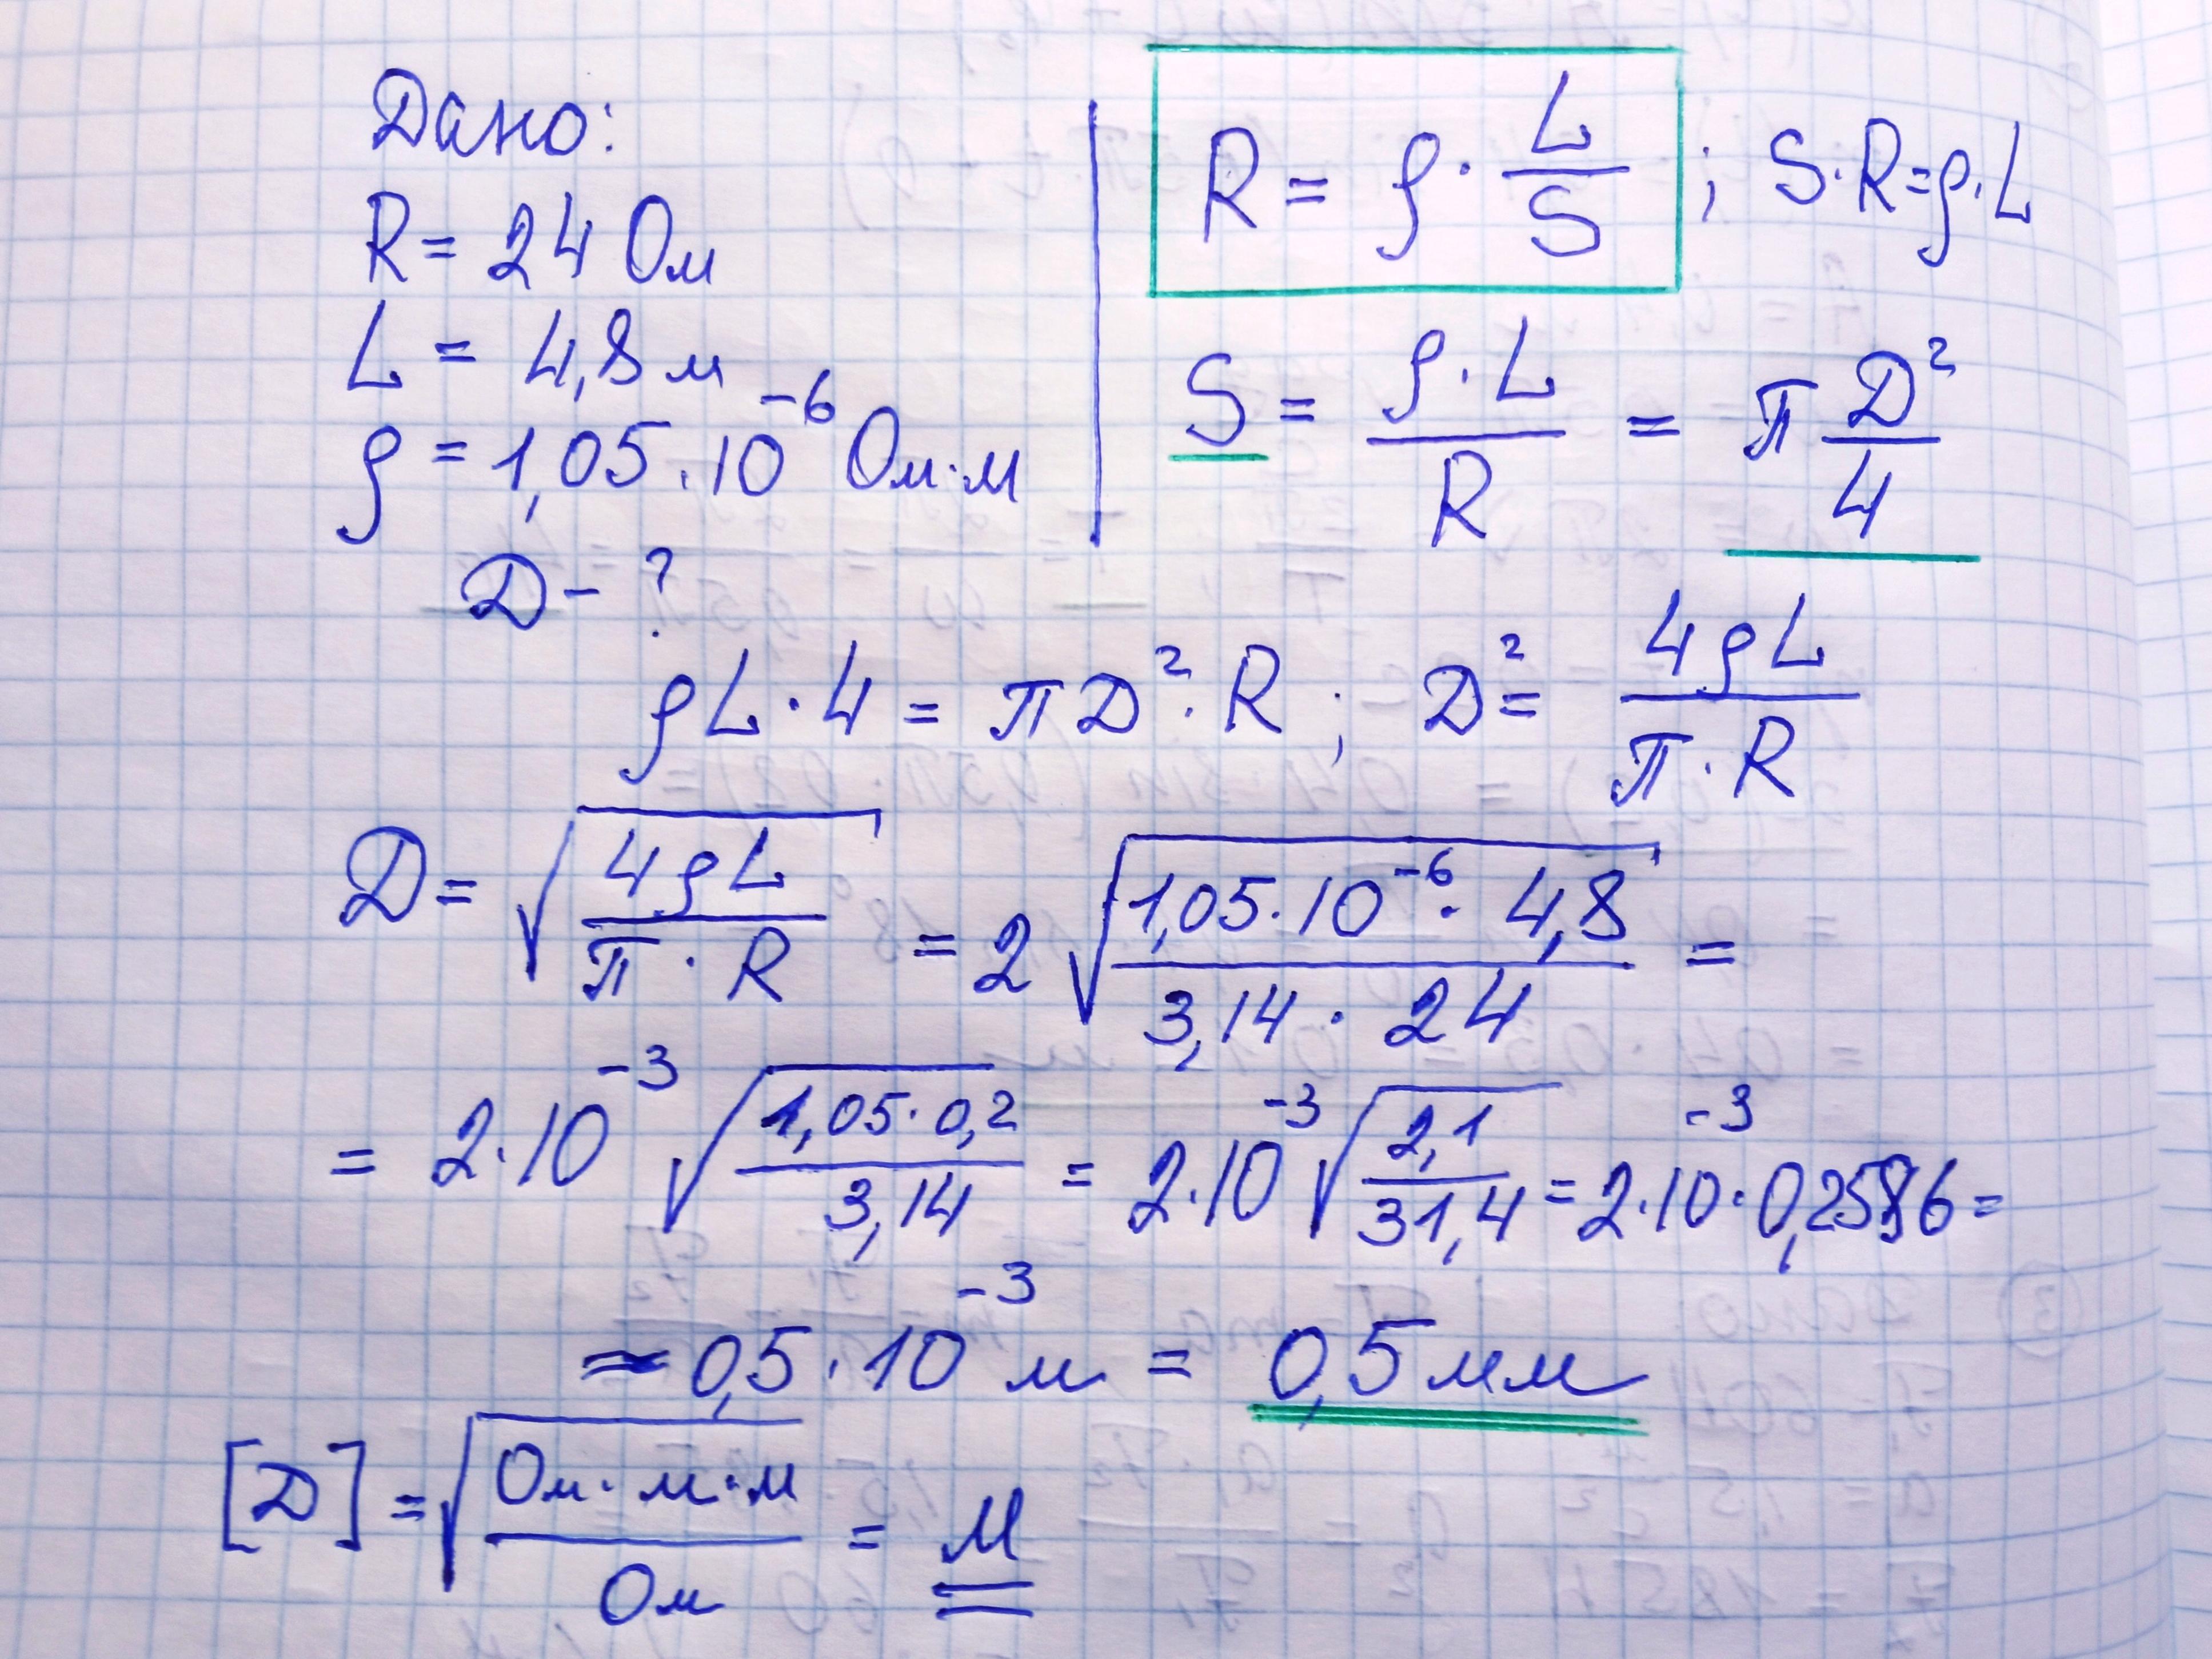 Дано:
R = 24 Ом
L = 4,8 м
ρ = 1,05·10⁻⁶ Ом·м
D - ?
R = ρ · L/S ; S·R=ρ·L
S = ρ·L/R = π D²/4
ρL·4 = πD²·R ; D² = 4ρL/π·R
D = √(4ρL/π·R) = 2√(1,05·10⁻⁶·4,8/3,14·24) =
= 2·10⁻³ √(1,05·0,2/3,14) = 2·10⁻³ √(2,1/31,4) = 2·10⁻³·0,2586 =
≈ 0,5·10⁻³ м = 0,5 мм
[D] = √(Ом·м·м/Ом) = м